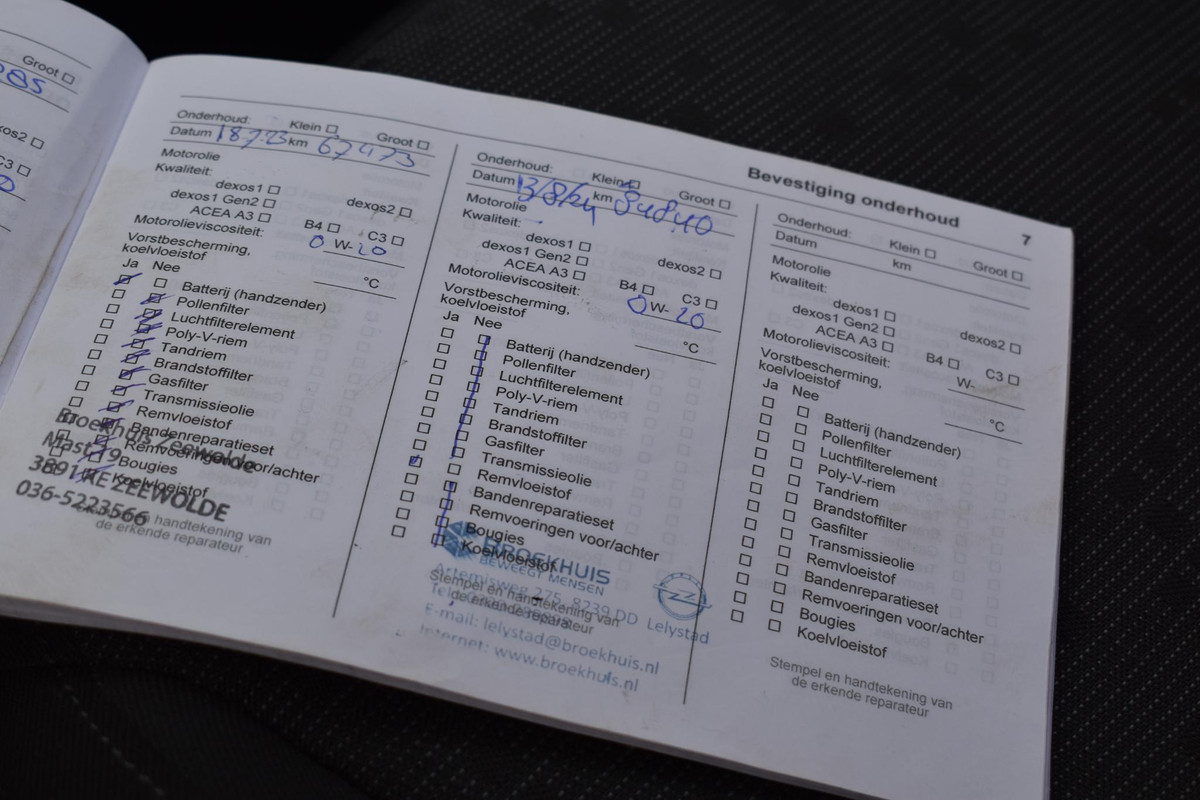 Groot
dexos2
C3
Bevestiging onderhoud
7
Onderhoud: Klein Groot
Datum 18.7.23 km 67473
Motorolie
Kwaliteit:
dexos1
dexos1 Gen2 dexos2
ACEA A3 B4 C3
Motorolieviscositeit: 0 W- 20
Vorstbescherming,
koelvloeistof °C
Ja Nee
Batterij (handzender)
Pollenfilter
Luchtfilterelement
Poly-V-riem
Tandriem
Brandstoffilter
Gasfilter
Transmissieolie
Remvloeistof
Bandenreparatieset
Remvoeringen voor/achter
Bougies
Koelvloeistof
Broekhuis Zeewolde
ZEEWOLDE
036-5223566
Stempel en handtekening van
de erkende reparateur
Onderhoud: Klein Groot
Datum 13/8/24 km 84840
Motorolie
Kwaliteit:
dexos1
dexos1 Gen2 dexos2
ACEA A3 B4 C3
Motorolieviscositeit: 0 W- 20
Vorstbescherming,
koelvloeistof °C
Ja Nee
Batterij (handzender)
Pollenfilter
Luchtfilterelement
Poly-V-riem
Tandriem
Brandstoffilter
Gasfilter
Transmissieolie
Remvloeistof
Bandenreparatieset
Remvoeringen voor/achter
Bougies
Koelvloeistof
BROEKHUIS
BEWEEGT MENSEN
Artemisweg 275, 8239 DD Lelystad
E-mail: lelystad@broekhuis.nl
Internet: www.broekhuis.nl
Stempel en handtekening van
de erkende reparateur
Onderhoud: Klein Groot
Datum km
Motorolie
Kwaliteit:
dexos1
dexos1 Gen2 dexos2
ACEA A3 B4 C3
Motorolieviscositeit: W-
Vorstbescherming,
koelvloeistof °C
Ja Nee
Batterij (handzender)
Pollenfilter
Luchtfilterelement
Poly-V-riem
Tandriem
Brandstoffilter
Gasfilter
Transmissieolie
Remvloeistof
Bandenreparatieset
Remvoeringen voor/achter
Bougies
Koelvloeistof
Stempel en handtekening van
de erkende reparateur